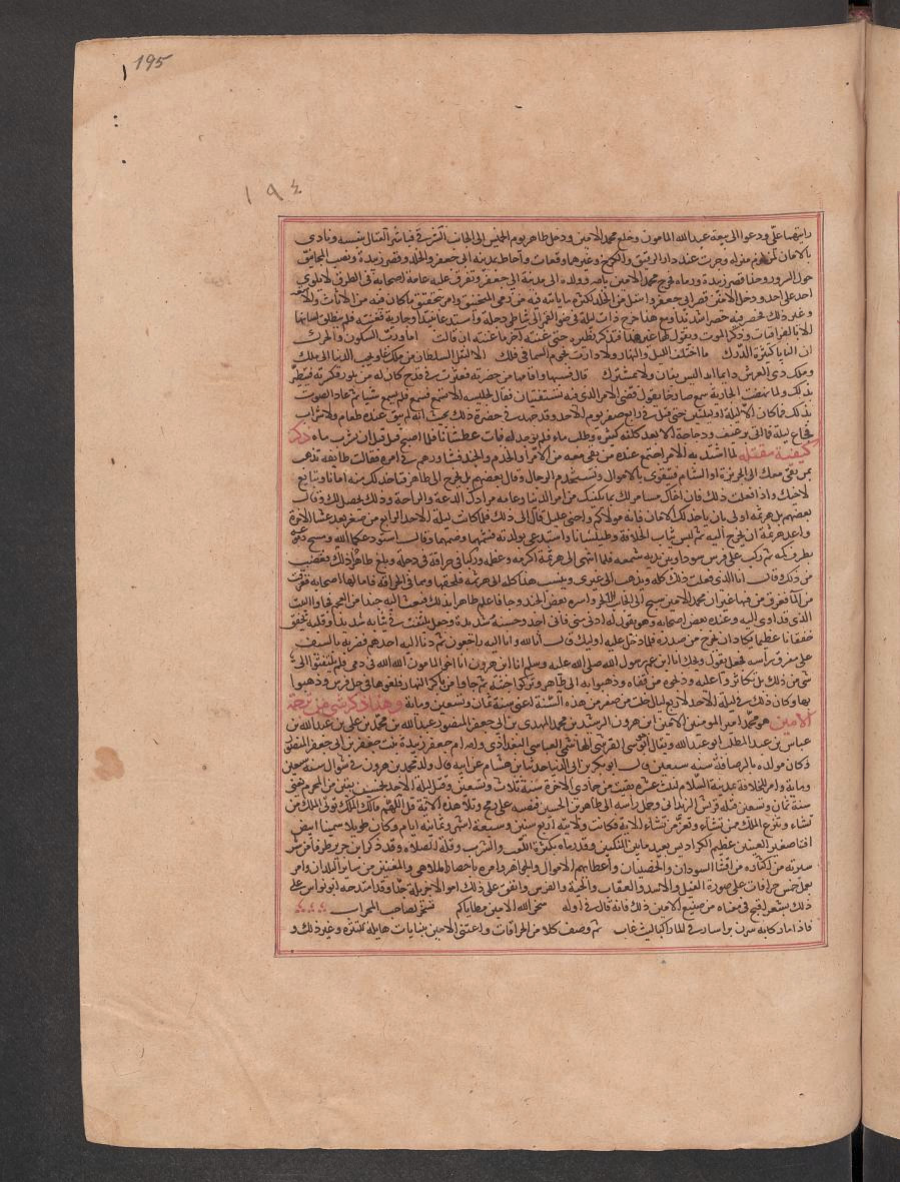 195
١٩٤
ودعوا الى بيعة عبد الله المامون وخلع محمد الامين ودخل طاهر يوم الخميس الى الجانب الشرقي فباشر القتال بنفسه ونادى
بالامان لمن لزم منزله وجرت عند دار الرقيق والكرخ وغيرهما وقعات واحاط بمدينة ابى جعفر والخلد وقصر زبيدة ونصب المجانيق
حول السور وحذا قصر زبيدة ورماه فخرج محمد الامين بامه وولده الى مدينة ابى جعفر وتفرق عليه عامة اصحابه في الطرق لا يلوي
احد على احد ودخل الامين قصر ابى جعفر وانتقل من الخلد لكثرة ما ياتيه فيه من رمي المنجنيق وامر بتحريق ما كان فيه من الاثاث
وغير ذلك فحصر فيه حصرا شديدا ومع هذا خرج ذات ليلة في ضو القمر الى شاطى دجلة واستدعا نبيذا وجارية فغنته فلم ينطلق لسانها
الا بالفراقيات وذكر الموت ويقول لها غير هذا فتذكر نظيره حتى غنته آخر ما غنته ان قالت اما ورب السكون والحرك
ان المنايا كثيرة الدرك ما اختلف الليل والنهار ولا دارت نجوم السما في فلك الا لنقل السلطان من ملك غاو يحب الدنيا الى ملك
وملك ذي العرش دايما ابدا ليس بفان ولا مشترك قال فسبها واقامها من حضرته فعثرت في قدح كان له من بلور فكسرته فتطير
بذلك ولما نهضت الجارية سمع صارخا يقول قضي الامر الذي فيه تستفتيان فقال لجليسه الا تسمع فسمع فلم يسمع شيا ثم عاد الصوت
بذلك فما كان الا ليلة او ليلتين حتى قتل في رابع صفر يوم الاحد وقد حصل في حصره ذلك بحيث انه لم يبق عنده طعام ولا شراب
فجاع ليلة فما اتى برغيف ودجاجة الا بعد كلفة كثيرة وطلب ماء فلم يوجد له فبات عطشانا فلما اصبح قتل قبل ان يشرب ماء ذكر
كيفية مقتله لما اشتد به الامر اجتمع عنده من بقي معه من الامرا والخدم والجند فشاورهم في امره فقالت طايفة تذهب
بمن بقي معك الى الجزيرة او الشام فتتقوى بالاموال وتستخدم الرجال وقال بعضهم بل تخرج الى طاهر فتاخذ لك منه امانا وتبايع
لاخيك واذا فعلت ذلك فان اخاك سيامر لك بما يكفيك من امر الدنيا وغاية مرادك الدعة والراحة وذلك يحصل لك وقال
بعضهم بل هرثمة اولى بان ياخذ لك الامان فانه مولاكم واحنى عليك فمال الى ذلك فلما كانت ليلة الاحد الرابع من صفر بعد عشا الاخرة
واعد هرثمة ان يخرج اليه ثم لبس ثياب الخلافة وطيلسانا واستدعى بولديه فشمهما وضمهما وقال استودعكما الله ومسح دموعه
بطرف كمه ثم ركب على فرس سودا وبين يديه شمعة فلما انتهى الى هرثمة اكرمه وعظمه وركبا في حراقة في دجلة وبلغ طاهرا ذلك فغضب
من ذلك وقال انا الذي فعلت ذلك كله ويذهب الى غيري وينسب هذا كله الى هرثمة فلحقهما وهما في الحراقة فامالها اصحابه فغرق
من فيها غير ان محمد الامين سبح الى الجانب الاخر واسره بعض الجند وجا فاعلم طاهرا بذلك فبعث اليه جندا من العجم فجاوا البيت
الذي قد اوى اليه وعنده بعض اصحابه وهو يقول له ادن مني فاني اجد وحشة شديدة وجعل يلتف في ثيابه شديدا وقلبه يخفق
خفقانا عظيما يكاد ان يخرج من صدره فلما دخل عليه اوليك قال انا لله وانا اليه راجعون ثم دنا اليه احدهم فضربه بالسيف
على مفرق راسه فجعل يقول ويحك انا ابن عم رسول الله صلى الله عليه وسلم انا ابن هرون انا اخو المامون الله الله في دمي فلم يلتفتوا الى
شي من ذلك بل تكاثروا عليه وذبحوه من قفاه وذهبوا به الى طاهر وتركوا جثته ثم جاوا من باكر النهار فلفوها في جل فرس وذهبوا
بها وكان ذلك في ليلة الاحد لاربع ليال خلت من صفر من هذه السنة اعني سنة ثمان وتسعين وماية وهذا ذكر شي من ترجمة
الامين هو محمد امير المومنين الامين ابن هرون الرشيد بن محمد المهدي بن ابي جعفر المنصور عبد الله بن محمد بن علي بن عبد الله بن
عباس بن عبد المطلب ابو عبد الله ويقال ابو موسى القرشي الهاشمي العباسي البغدادي وامه ام جعفر زبيدة بنت جعفر بن ابى جعفر المنصور
وكان مولده بالرصافة سنة سبعين قال ابو بكر بن ابى الدنيا حدثنا بن هشام عن ابيه قال ولد محمد بن هرون في شوال سنة سبعين
وماية واتته الخلافة بمدينة السلام لثلث عشرة بقيت من جمادى الآخرة سنة ثلاث وتسعين وقتل ليلة الاحد لخمس بقين من المحرم
سنة ثمان وتسعين قتله قريش الدنداني وحمل راسه الى طاهر بن الحسين فنصبه على رمح وتلا هذه الاية قل اللهم مالك الملك توتي الملك من
تشاء وتنزع الملك ممن تشاء وتعز من تشاء الاية فكانت ولايته اربع سنين وسبعة اشهر وثمانية ايام وكان طويلا سمينا ابيض
اقنا صغير العينين عظيم الكراديس بعيد ما بين المنكبين وقد رماه بكثرة اللعب والشرب وقلة الصلاة وقد ذكر ابن جرير طرفا من
سيرته من اكثاره من اقتنا السودان والخصيان واعطايهم الاموال والجواهر وامره باحضار الملاهي والمغنين من ساير البلدان وامر
بعمل خمس حراقات على صورة الفيل والاسد والعقاب والحية والفرس وانفق على ذلك اموالا جزيلة جدا وقد امتدحه ابو نواس على
ذلك بشعر اقبح في معناه من صنيع الامين ذلك فانه قال في اوله سخر الله للامين مطاياكم تسخر لصاحب المحراب
فاذا ما ركابه سرن برا سار في الما راكبا ليث غاب ثم وصف كلا من الحراقات واعتنى الامين ببنايات هايلة للنزه وغير ذلك و